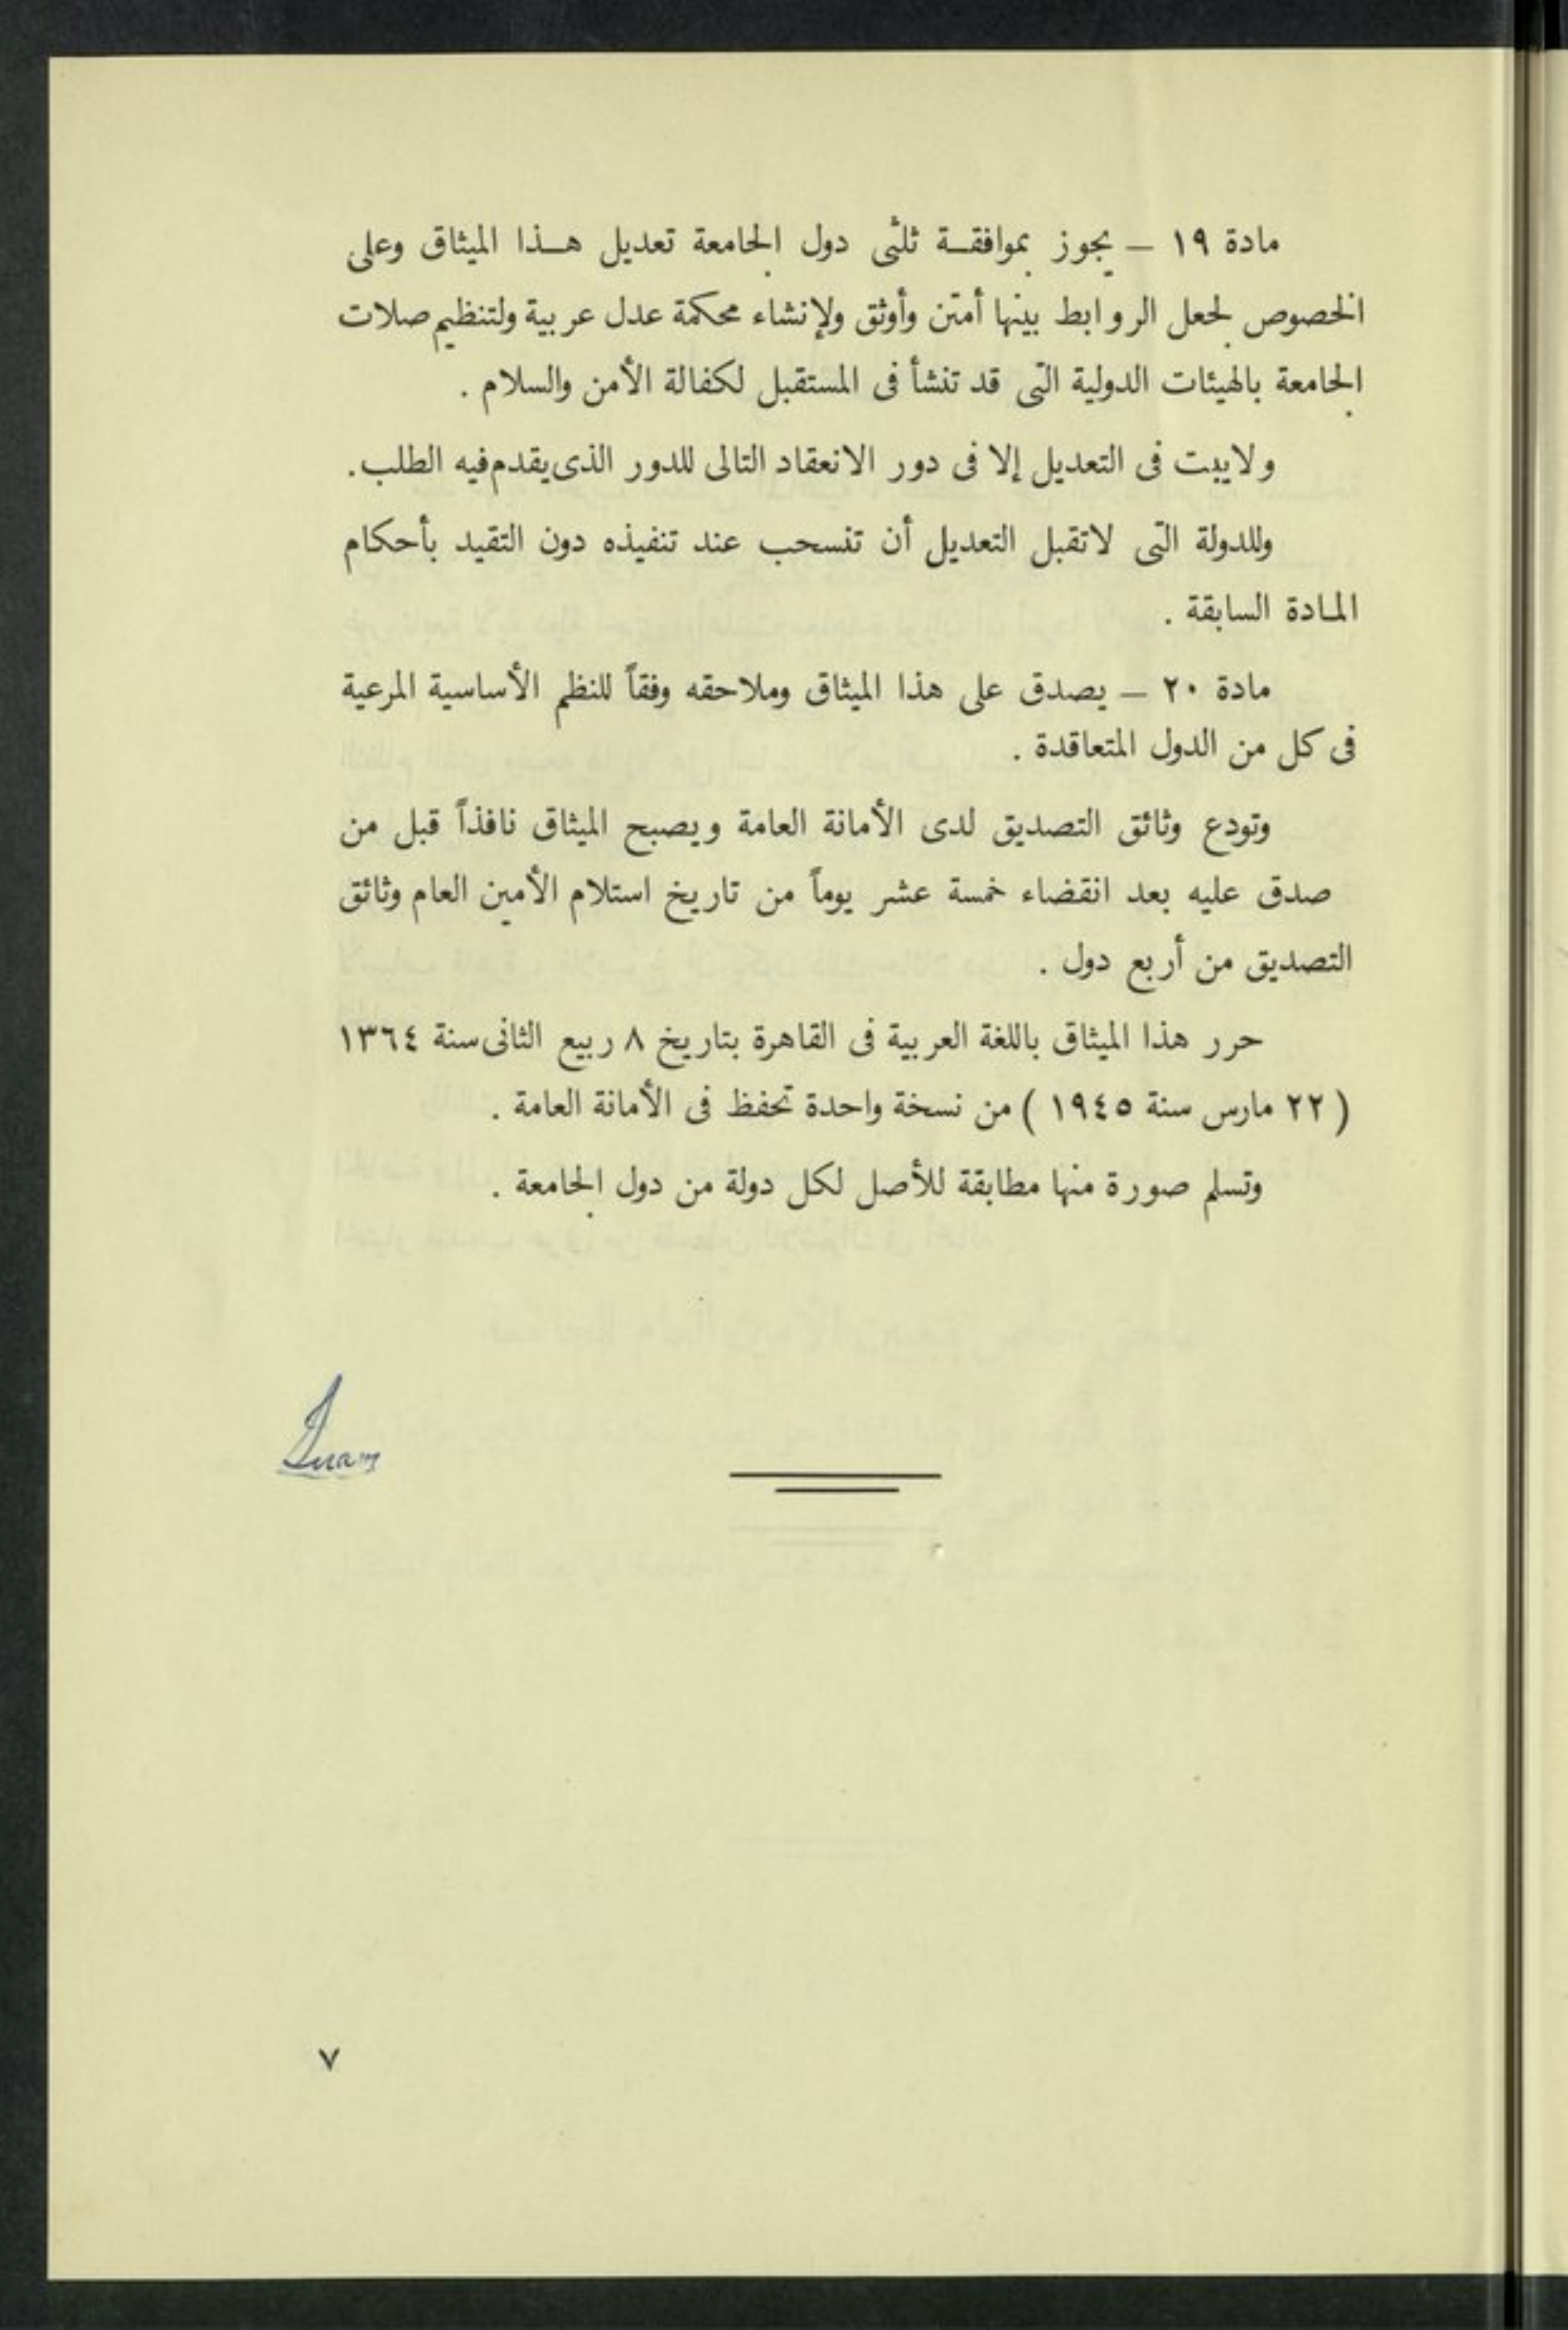 مادة ١٩ — يجوز بموافقة ثلثى دول الجامعة تعديل هذا الميثاق وعلى
الخصوص لجعل الروابط بينها أمتن وأوثق ولإنشاء محكمة عدل عربية ولتنظيم صلات
الجامعة بالهيئات الدولية التى قد تنشأ فى المستقبل لكفالة الأمن والسلام .
ولا يبت فى التعديل إلا فى دور الانعقاد التالى للدور الذى يقدم فيه الطلب .
وللدولة التى لا تقبل التعديل أن تنسحب عند تنفيذه دون التقيد بأحكام
المادة السابقة .
مادة ٢٠ — يصدق على هذا الميثاق وملاحقه وفقاً للنظم الأساسية المرعية
فى كل من الدول المتعاقدة .
وتودع وثائق التصديق لدى الأمانة العامة ويصبح الميثاق نافذاً قبل من
صدق عليه بعد انقضاء خمسة عشر يوماً من تاريخ استلام الأمين العام وثائق
التصديق من أربع دول .
حرر هذا الميثاق باللغة العربية فى القاهرة بتاريخ ٨ ربيع الثانى سنة ١٣٦٤
( ٢٢ مارس سنة ١٩٤٥ ) من نسخة واحدة تحفظ فى الأمانة العامة .
وتسلم صورة منها مطابقة للأصل لكل دولة من دول الجامعة .
٧